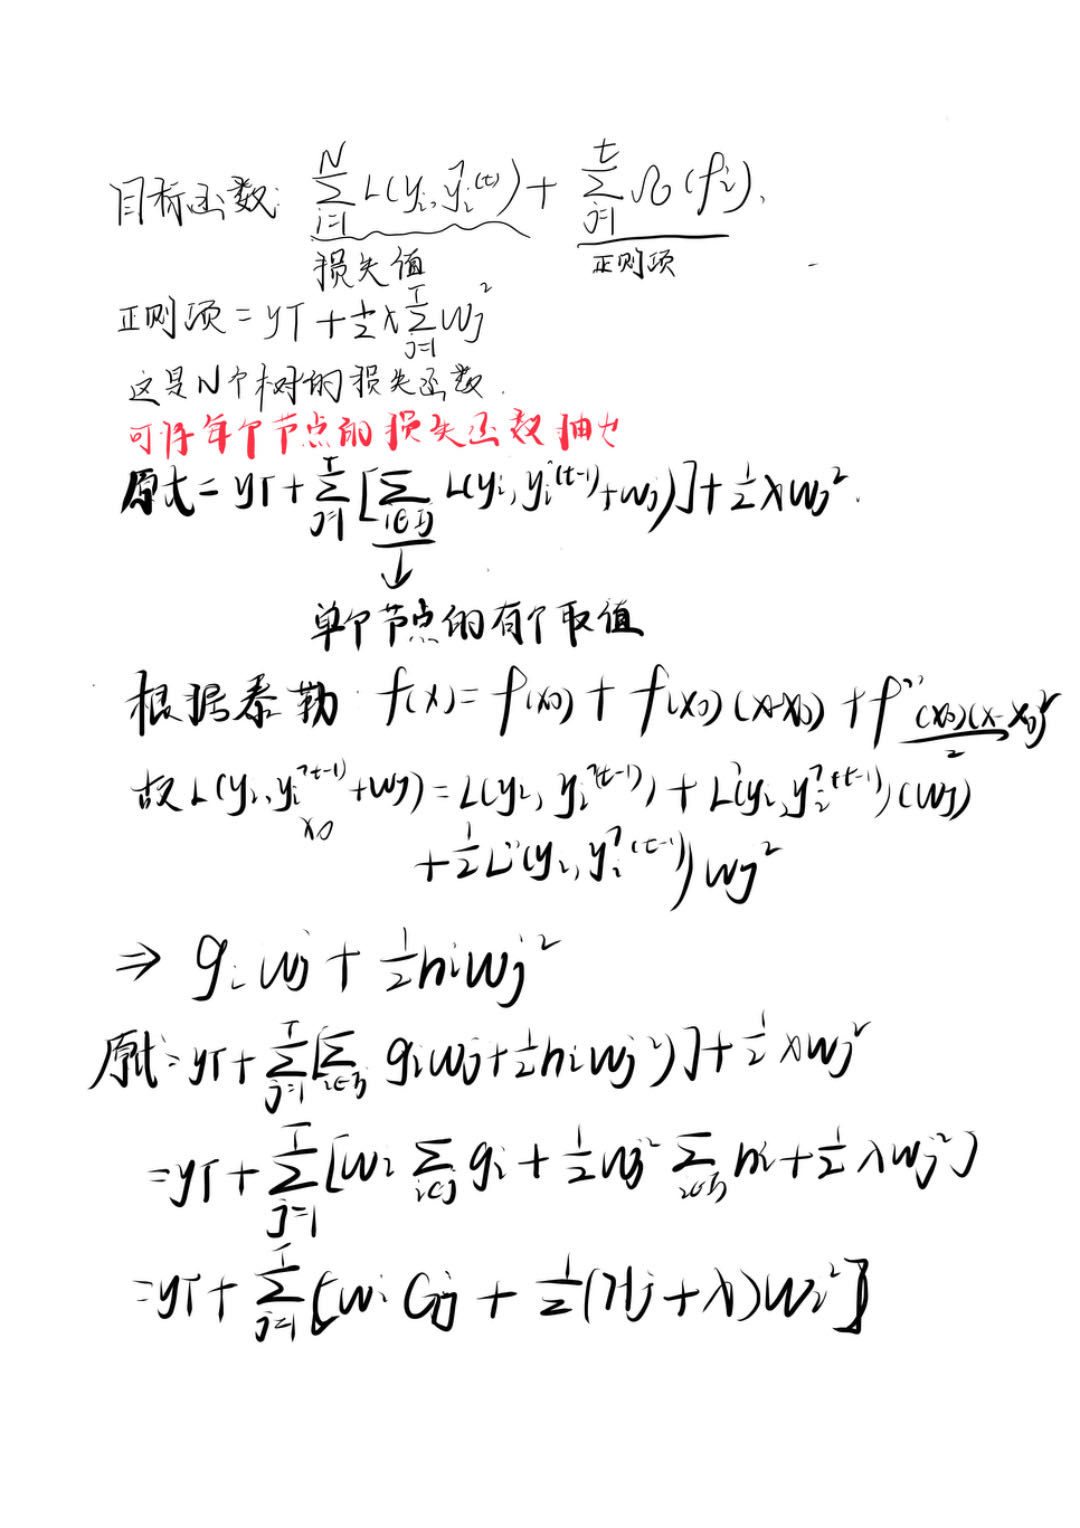 目标函数: ∑_{i=1}^{N} L(y_i, ŷ_i^{(t)}) + ∑_{j=1}^{t} Ω(f_i).
损失值 正则项
正则项 = γT + ½λ∑_{j=1}^{T} w_j²
这是N个树的损失函数.
可将每个节点的损失函数抽出
原式 = γT + ∑_{j=1}^{T} [∑_{i∈I_j} L(y_i, ŷ_i^{(t-1)} + w_j)] + ½λw_j².
↓
单个节点的有个取值
根据泰勒: f(x) = f(x_0) + f'(x_0)(x-x_0) + f''(x_0)(x-x_0)²/2
故 L(y_i, ŷ_i^{(t-1)} + w_j) = L(y_i, ŷ_i^{(t-1)}) + L'(y_i, ŷ_i^{(t-1)})(w_j)
x_0
+ ½L''(y_i, ŷ_i^{(t-1)}) w_j²
⇒ g_i w_j + ½h_i w_j²
原式 = γT + ∑_{j=1}^{T} [∑_{i∈I_j} g_i w_j + ½h_i w_j²)] + ½λw_j²
= γT + ∑_{j=1}^{T} [w_i ∑_{i∈j} g_i + ½w_j² ∑_{i∈I_j} h_i + ½λw_j²]
= γT + ∑_{j=1}^{T} [w_i G_j + ½(H_j + λ)w_i²]